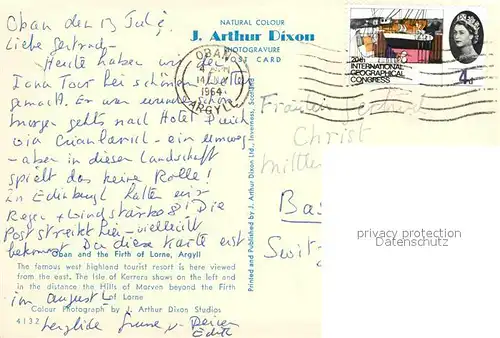 Oban den 13 Juli
NATURAL COLOUR
J. Arthur Dixon
PHOTOGRAVURE
POST CARD
Liebe Gertrud,
Heute haben wir der
Iona Tour bei schönem
gemacht. Er war
morgen gehts nach Hotel
via - ein umweg
- aber in dieser Landschaft
spielt das keine Rolle!
in Edinburgh hatten wir
Regen + Windstärke 8! Die
Post streikt hier - vielleicht
bekommst Du diese Karte erst
im August!
herzliche Grüsse v. Deiner
Edith
OBAN
14 JLY
1964
ARGYLL
20th
INTERNATIONAL
GEOGRAPHICAL
CONGRESS
4d
Fräulein Gertrud
Christ
Bas
Switz
Oban and the Firth of Lorne, Argyll
The famous west highland tourist resort is here viewed
from the east. The Isle of Kerrera shows on the left and
in the distance the Hills of Morven beyond the Firth
of Lorne
Colour Photograph by J. Arthur Dixon Studios
4132
Printed and Published by J. Arthur Dixon Ltd., Inverness, Scotland
privacy protection
Datenschutz